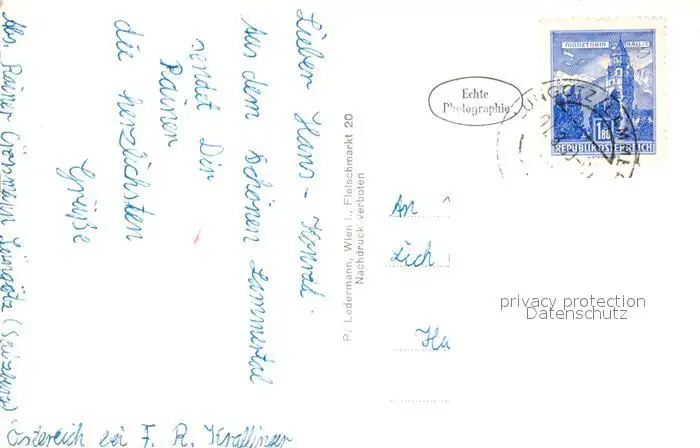 Lieber Hans-Konrad.
Aus dem schönen Lammertal
sendet Dir
Rainer
die herzlichsten
Grüße
Abs. Rainer Lungötz (Salzburg)
Österreich bei F. R. Krallinger
P. Ledermann, Wien I., Fleischmarkt 20
Nachdruck verboten
Echte
Photographie
MÜNZTURM HALL I. T.
1.80
REPUBLIK ÖSTERREICH
LUNGÖTZ
An
Lich
Ha
privacy protection
Datenschutz